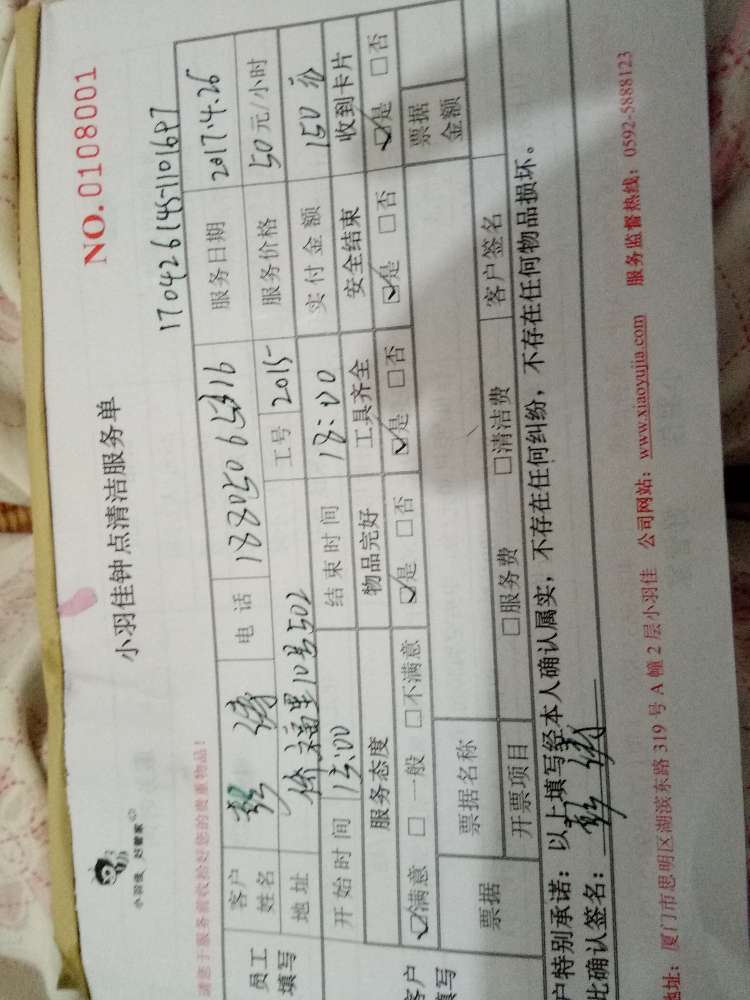 小羽佳 好管家
小羽佳钟点清洁服务单
NO.0108001
请您于服务前收拾好您的贵重物品!
员工填写
客户姓名
电话
服务日期 2017.4.26
地址
10号502
工号 2015
服务价格 50元/小时
开始时间 15:00 结束时间 18:00 实付金额 150元
服务态度 物品完好 工具齐全 安全结束 收到卡片
☑满意 □一般 □不满意 ☑是 □否 ☑是 □否 ☑是 □否 ☑是 □否
票据 票据名称 票据金额
开票项目 □服务费 □清洁费 客户签名
户特别承诺:以上填写经本人确认属实,不存在任何纠纷,不存在任何物品损坏。
此确认签名:
地址:厦门市思明区湖滨东路 319 号 A 幢 2 层小羽佳 公司网站:www.xiaoyujia.com 服务监督热线:0592-5888123